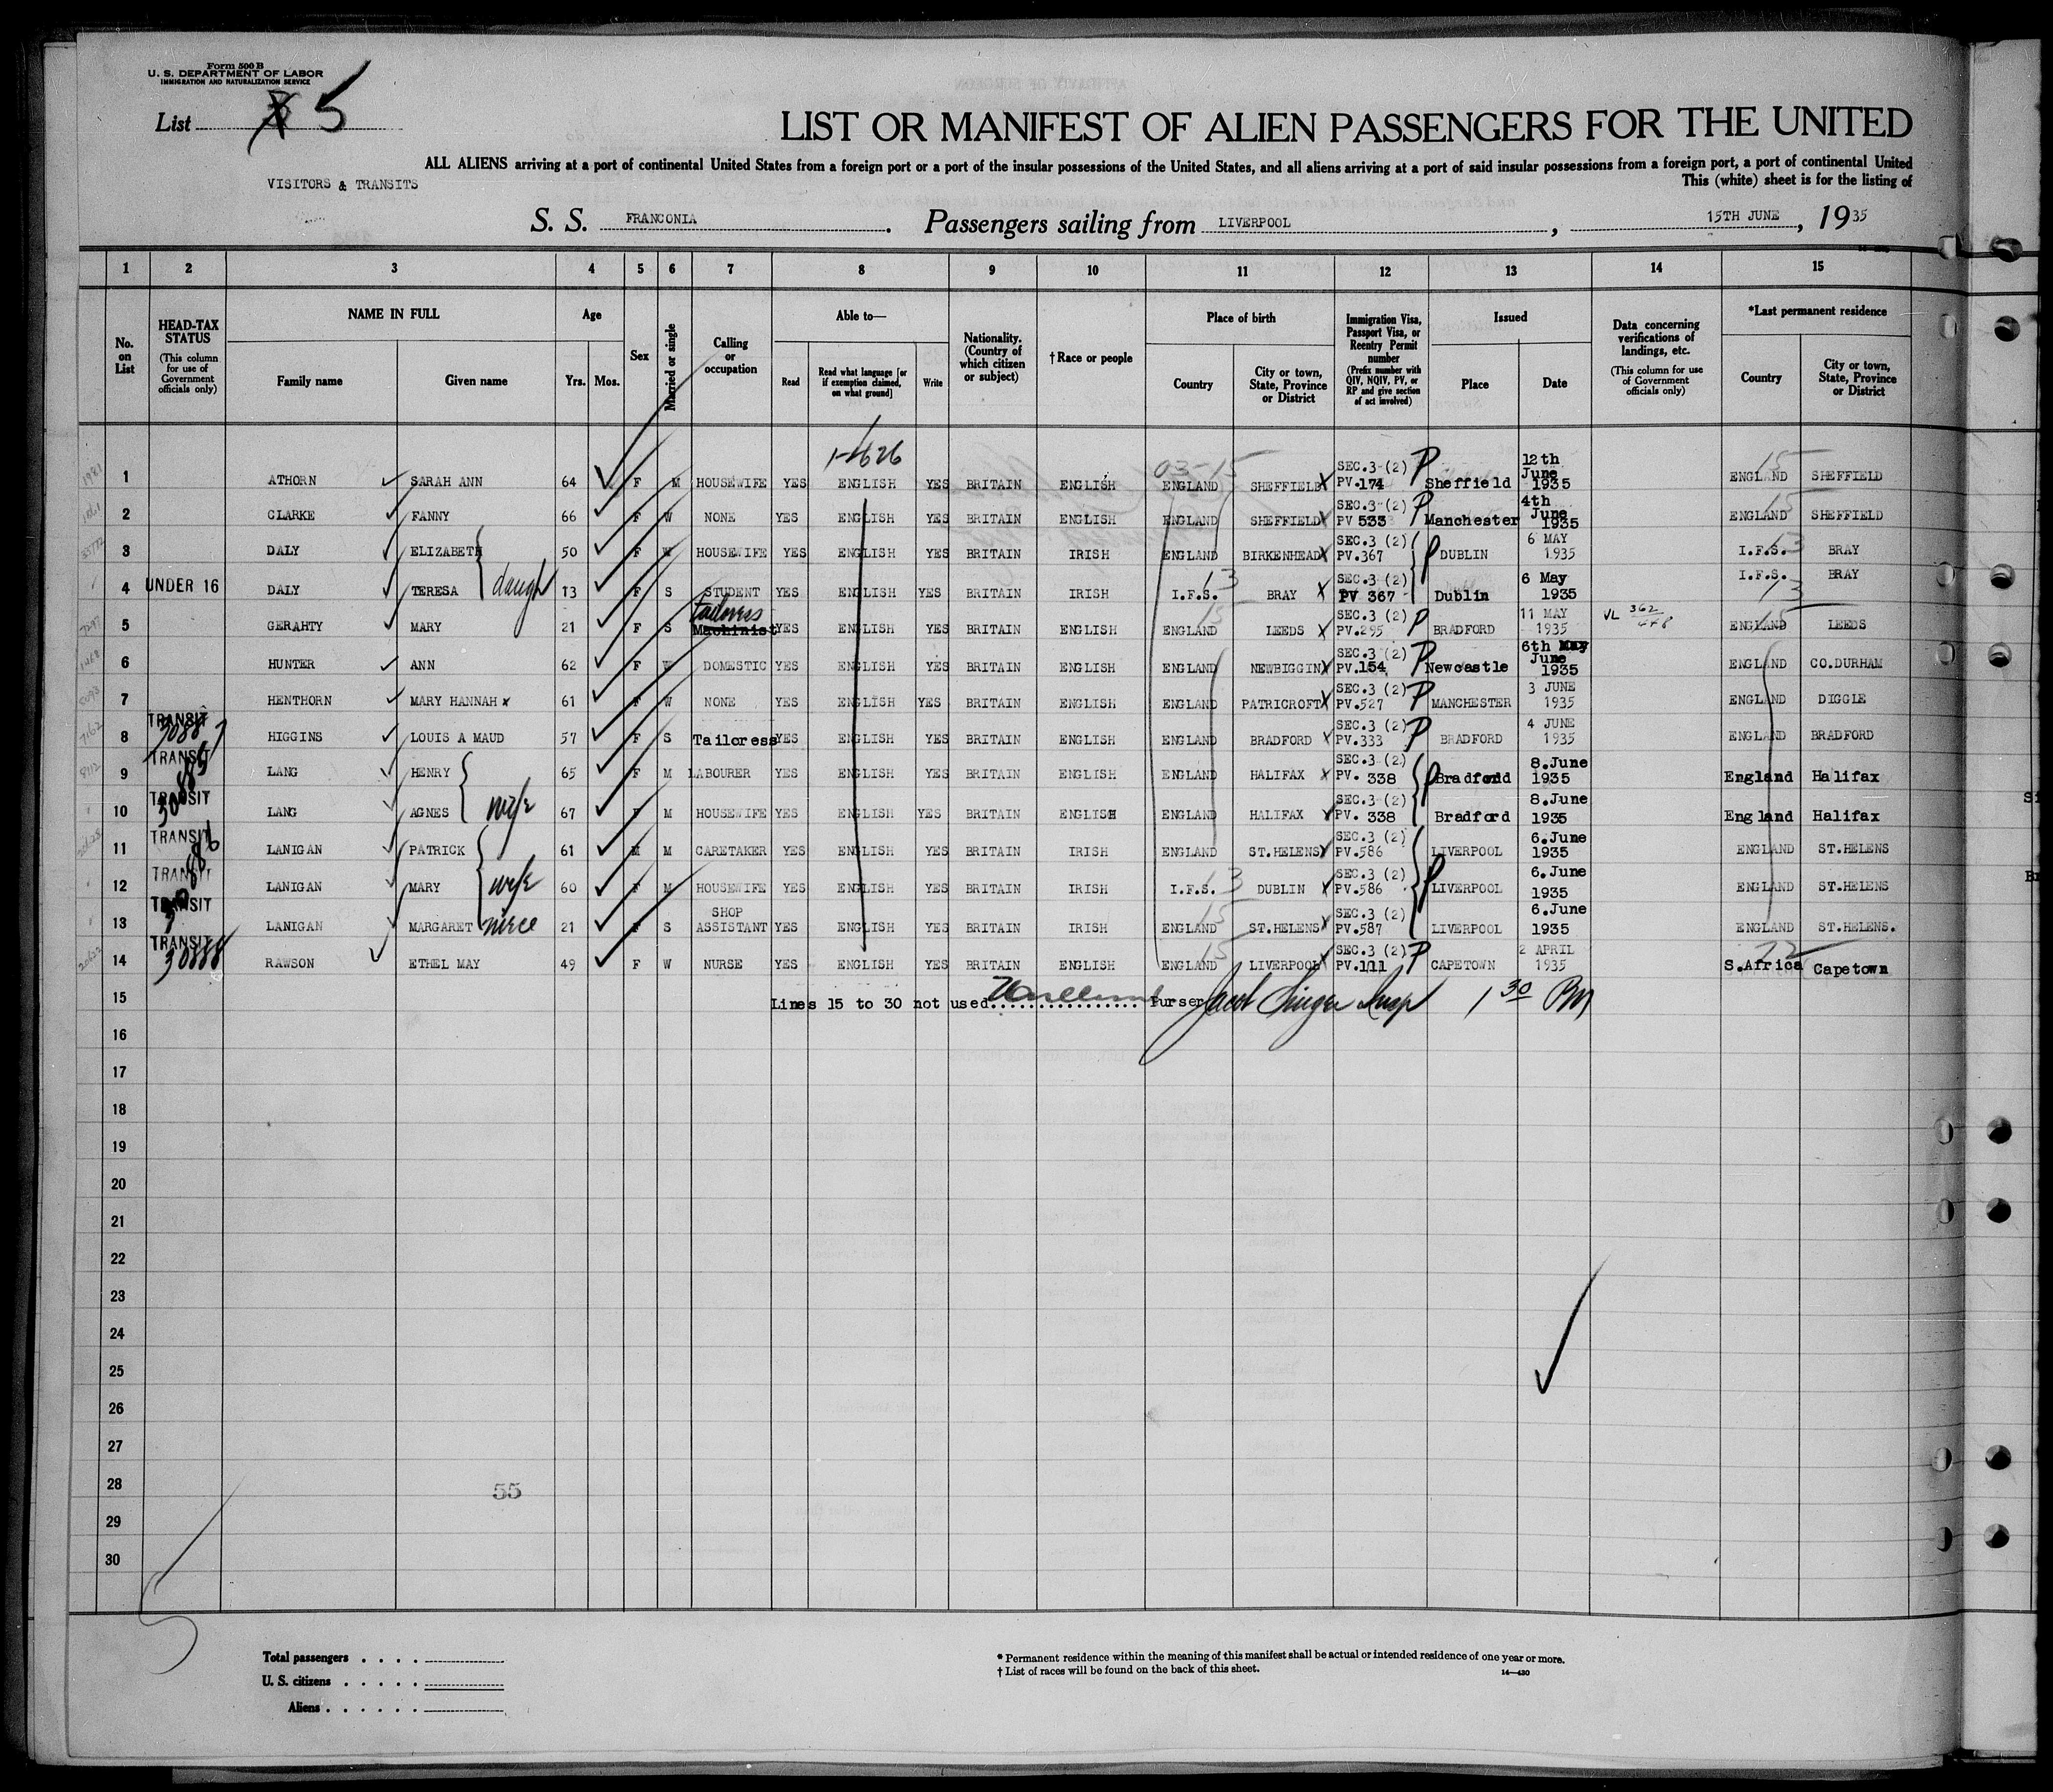 Form 500 B
U. S. DEPARTMENT OF LABOR
IMMIGRATION AND NATURALIZATION SERVICE
List 5
LIST OR MANIFEST OF ALIEN PASSENGERS FOR THE UNITED
ALL ALIENS arriving at a port of continental United States from a foreign port or a port of the insular possessions of the United States, and all aliens arriving at a port of said insular possessions from a foreign port, a port of continental United
This (white) sheet is for the listing of
VISITORS & TRANSITS
S. S. FRANCONIA. Passengers sailing from LIVERPOOL, 15TH JUNE, 1935
1 2 3 4 5 6 7 8 9 10 11 12 13 14 15
No. on List
HEAD-TAX STATUS (This column for use of Government officials only)
NAME IN FULL Family name Given name
Age Yrs. Mos.
Sex
Married or single
Calling or occupation
Able to— Read Read what language [or if exemption claimed, on what ground] Write
Nationality. (Country of which citizen or subject)
†Race or people
Place of birth Country City or town, State, Province or District
Immigration Visa, Passport Visa, or Reentry Permit number (Prefix number with QIV, NQIV, PV, or RP and give section of act involved)
Issued Place Date
Data concerning verifications of landings, etc. (This column for use of Government officials only)
*Last permanent residence Country City or town, State, Province or District
1-626 03-15 15
1 ATHORN SARAH ANN 64 F M HOUSEWIFE YES ENGLISH YES BRITAIN ENGLISH ENGLAND SHEFFIELD SEC.3 (2) PV.174 P Sheffield 12th June 1935 ENGLAND SHEFFIELD
2 CLARKE FANNY 66 F W NONE YES ENGLISH YES BRITAIN ENGLISH ENGLAND SHEFFIELD SEC.3 (2) PV 533 P Manchester 4th June 1935 15 ENGLAND SHEFFIELD
3 DALY ELIZABETH 50 F W HOUSEWIFE YES ENGLISH YES BRITAIN IRISH ENGLAND BIRKENHEAD SEC.3 (2) PV.367 P DUBLIN 6 MAY 1935 I.F.S. 13 BRAY
4 UNDER 16 DALY TERESA daugh 13 F S STUDENT YES ENGLISH YES BRITAIN IRISH I.F.S. 13 BRAY SEC.3 (2) PV 367 Dublin 6 May 1935 I.F.S. 13 BRAY
5 GERAHTY MARY 21 F S tailoress Machinist YES ENGLISH YES BRITAIN ENGLISH 15 ENGLAND LEEDS SEC.3 (2) PV.295 P BRADFORD 11 MAY 1935 VL 362/448 15 ENGLAND LEEDS
6 HUNTER ANN 62 F W DOMESTIC YES ENGLISH YES BRITAIN ENGLISH ENGLAND NEWBIGGIN SEC.3 (2) PV.154 P Newcastle 6th May June 1935 ENGLAND CO.DURHAM
7 HENTHORN MARY HANNAH x 61 F W NONE YES ENGLISH YES BRITAIN ENGLISH ENGLAND PATRICROFT SEC.3 (2) PV.527 P MANCHESTER 3 JUNE 1935 ENGLAND DIGGLE
8 TRANSIT HIGGINS LOUIS A MAUD 57 F S Tailoress YES ENGLISH YES BRITAIN ENGLISH ENGLAND BRADFORD SEC.3 (2) PV.333 P BRADFORD 4 JUNE 1935 ENGLAND BRADFORD
9 TRANSIT LANG HENRY 65 F M LABOURER YES ENGLISH YES BRITAIN ENGLISH ENGLAND HALIFAX SEC.3 (2) PV. 338 P Bradford 8.June 1935 England Halifax
10 TRANSIT LANG AGNES wife 67 F M HOUSEWIFE YES ENGLISH YES BRITAIN ENGLISH ENGLAND HALIFAX SEC.3 (2) PV. 338 Bradford 8.June 1935 England Halifax
11 TRANSIT LANIGAN PATRICK 61 M M CARETAKER YES ENGLISH YES BRITAIN IRISH ENGLAND ST.HELENS SEC.3 (2) PV.586 LIVERPOOL 6.June 1935 ENGLAND ST.HELENS
12 TRANSIT LANIGAN MARY wife 60 F M HOUSEWIFE YES ENGLISH YES BRITAIN IRISH I.F.S. 13 DUBLIN SEC.3 (2) PV.586 P LIVERPOOL 6.June 1935 ENGLAND ST.HELENS
13 TRANSIT LANIGAN MARGARET niece 21 F S SHOP ASSISTANT YES ENGLISH YES BRITAIN IRISH 15 ENGLAND ST.HELENS SEC.3 (2) PV.587 LIVERPOOL 6.June 1935 ENGLAND ST.HELENS.
14 TRANSIT 30888 RAWSON ETHEL MAY 49 F W NURSE YES ENGLISH YES BRITAIN ENGLISH 15 ENGLAND LIVERPOOL SEC.3 (2) PV.111 P CAPETOWN 2 APRIL 1935 22 S.Africa Capetown
15 Lines 15 to 30 not used................ Purser Jacob Singer Insp 1 30 PM
16
17
18
19
20
21
22
23
24
25
26
27
28
29
30
55
Total passengers
U. S. citizens
Aliens
* Permanent residence within the meaning of this manifest shall be actual or intended residence of one year or more.
† List of races will be found on the back of this sheet.
14—430